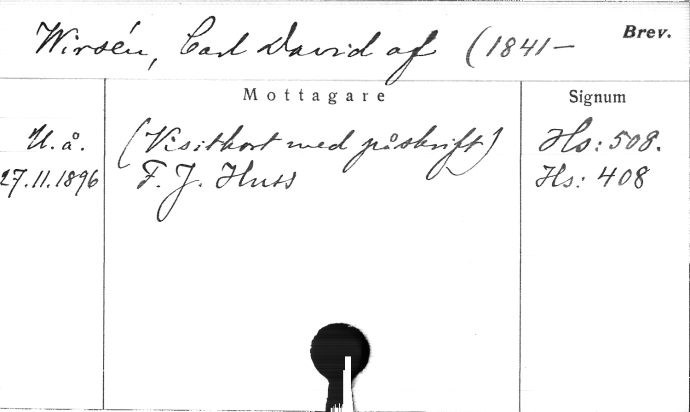 Wirsén, Carl David af (1841— Brev.
Mottagare Signum
U.å. (Visitkort med påskrift) Hs: 508.
27.11.1896 F. J. Huss Hs: 408